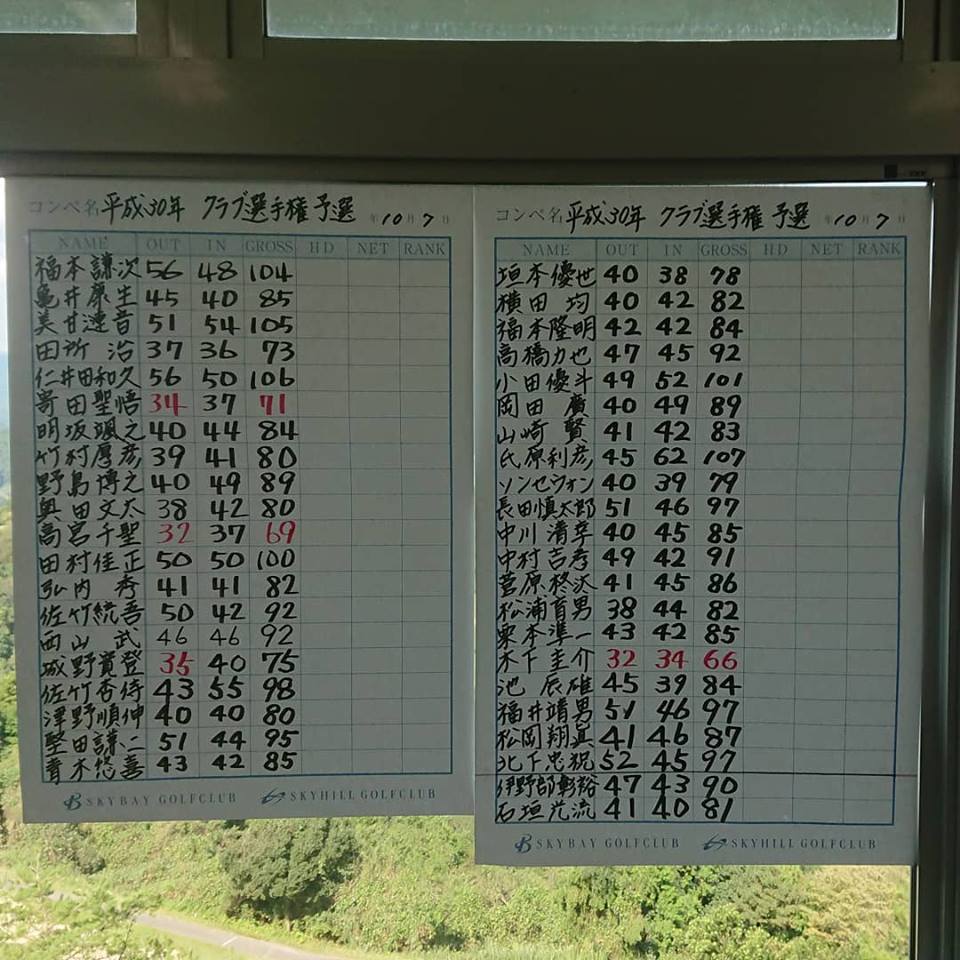 コンペ名 平成30年 クラブ選手権 予選 年10月7日
NAME OUT IN GROSS HD NET RANK
福本謙次 56 48 104
亀井康生 45 40 85
美甘漣音 51 54 105
田所 治 37 36 73
仁井田和久 56 50 106
寄田聖悟 34 37 71
明坂颯之 40 44 84
竹村厚彦 39 41 80
野島博之 40 49 89
奥田文太 38 42 80
高宮千聖 32 37 69
田村佳正 50 50 100
弘内 秀 41 41 82
佐竹統吾 50 42 92
西山 武 46 46 92
城野貴登 35 40 75
佐竹杏侍 43 55 98
澤野順伸 40 40 80
堅田謙二 51 44 95
青木悠喜 43 42 85
SKYBAY GOLFCLUB SKYHILL GOLFCLUB
コンペ名 平成30年 クラブ選手権 予選 年10月7日
NAME OUT IN GROSS HD NET RANK
垣本優世 40 38 78
横田 均 40 42 82
福本隆明 42 42 84
高橋力也 47 45 92
小田優斗 49 52 101
岡田 廣 40 49 89
山崎 賢 41 42 83
氏原利彦 45 62 107
ソンセウォン 40 39 79
長田慎太郎 51 46 97
中川清幸 40 45 85
中村吉孝 49 42 91
菅原柊汰 41 45 86
松浦育男 38 44 82
栗本準一 43 42 85
木下圭介 32 34 66
池 辰雄 45 39 84
福井靖男 51 46 97
松岡翔真 41 46 87
北下忠祝 52 45 97
伊野部彰裕 47 43 90
石垣 流 41 40 81
SKYBAY GOLFCLUB SKYHILL GOLFCLUB